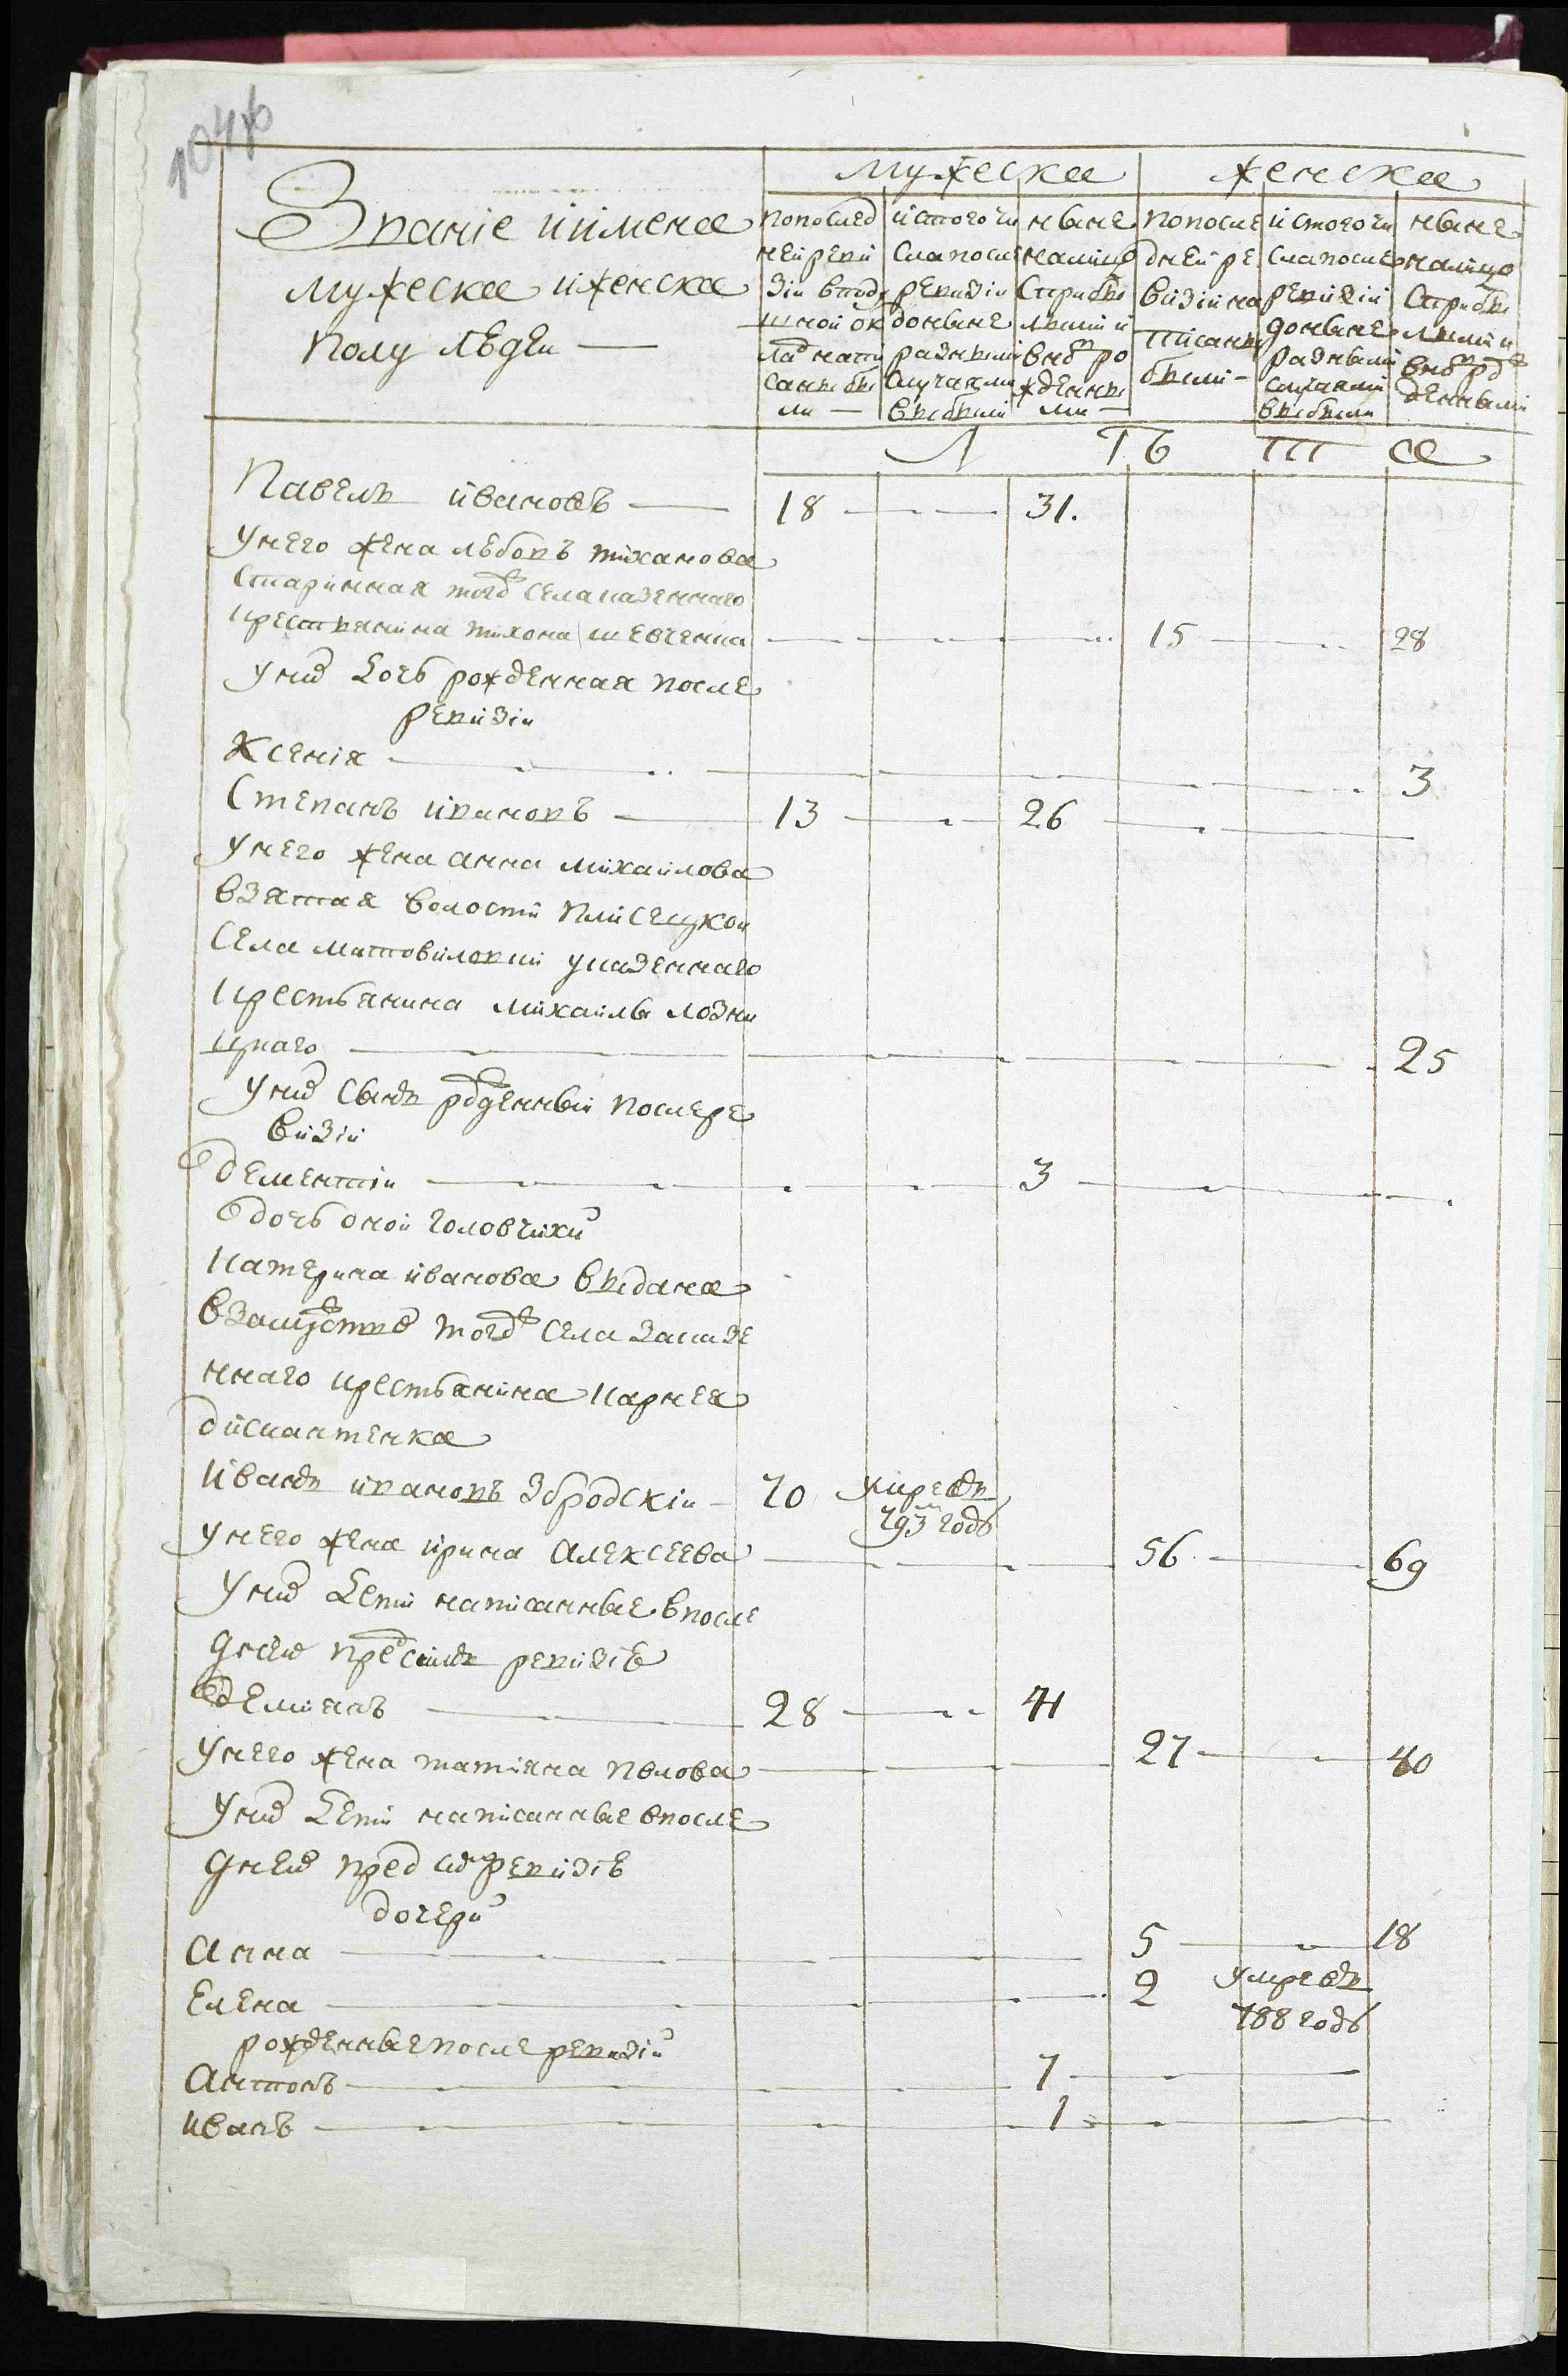 104об
Званіе иимена
мужеска иженска
полу людеи —
мужеска
женска
попослед
неи реви
зіи вподу
шной ок
ладъ напи
саны бы
ли —
истого чи
сла после
ревизіи
доныне
разными
случаями
выбыли
ныне
налицо
Стрибы
лыми и
вновь ро
жденны
ми —
попосле
дней ре
визіи на
писаны
были —
истого чи
сла после
ревизіи
доныне
разными
случаями
выбыли
ныне
налицо
Стрибы
лыми и
вновь рож
денными
Л Ѣ т а
Павелъ ивановъ — 18 — 31.
унего жена любовъ тиханова
Старинная тогожъ села казенного
крестянина тихона шевченка — 15 — 28
унихъ дочь рожденная после
ревизіи
Ксенія — 3
Степанъ ивановъ — 13 — 26
унего жена анна михаилова
взятая волости плисецкои
Села митовиловки указенного
крестьянина михаилы лозни
цкаго — 25
унихъ сынъ рожденный послере
визіи
дементіи — 3
дочь оной головчихи
катерина иванова выдана
взамужство тогожъ села заказе
ннаго крестьянина карнея
дискантенка
Иванъ ивановъ збродскіи — 70 умревъ
793 годъ
унего жена ирина алексеева — 56 — 69
унихъ дети написанные впосле
днеи пред симъ ревизіи
демянъ — 28 — 41
унего жена татіяна павлова — 27 — 40
унихъ дети написанные впосле
днеи пред сим ревизіи
дочери
анна — 5 — 18
Елена — 2 умревъ
788 годъ
рожденные после ревизіи
антонъ — 7
иванъ — 1